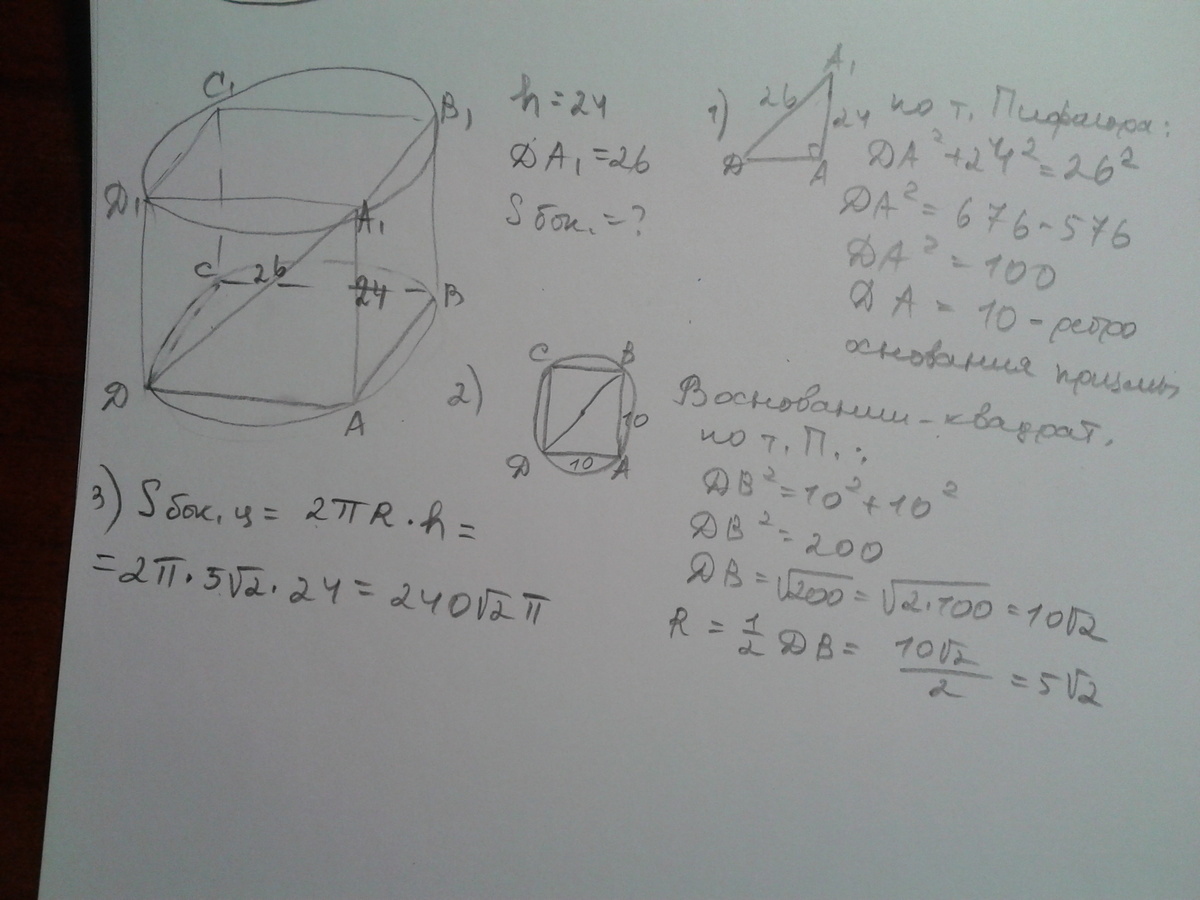 C₁
B₁
D₁
A₁
C
26
24
B
D
A
h = 24
DA₁ = 26
S бок. = ?
1)
A₁
26
24
D
A
по т. Пифагора:
DA² + 24² = 26²
DA² = 676 - 576
DA² = 100
DA = 10 - ребро
основания призмы
2)
C
B
10
D
10
A
В основании - квадрат.
по т. П.:
DB² = 10² + 10²
DB² = 200
DB = √200 = √2·100 = 10√2
R = 1/2 DB = 10√2/2 = 5√2
3) S бок. ц = 2πR · h =
= 2π · 5√2 · 24 = 240√2 π